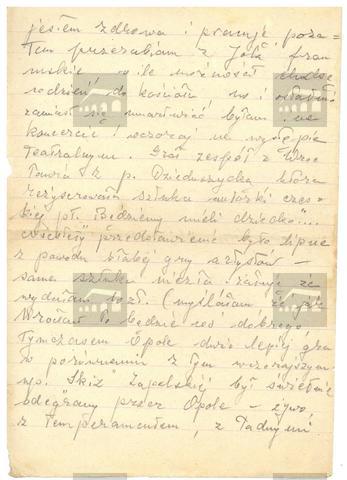 jestem zdrowa i pracuję, poza=
tem przerabiam z Jolą fran
cuskie o ile możności chodzę
codzień do kościoła, no i ostatnio
zamiast się umartwiać byłam na
koncercie i wczoraj na występie
Teatralnym. Grał zespół z Wroc
ławia z p. Dzieduszycką która
reżyserowała sztukę autorki czes=
kiej pt. Będziemy mieli dziecko"...
Niestety przedstawienie było lipne
z powodu białej gry artystów –
sama sztuka niezła. Żałuję że
wydałam zł. (myślałam że jak
Wrocław to będzie coś dobrego
Tymczasem Opole dużo lepiej gra
w porównaniu z tym wczorajszym
np. Skiz Zapolskiej był świetnie
odegrany przez Opole – żywo,
z temperamentem, z ładnymi